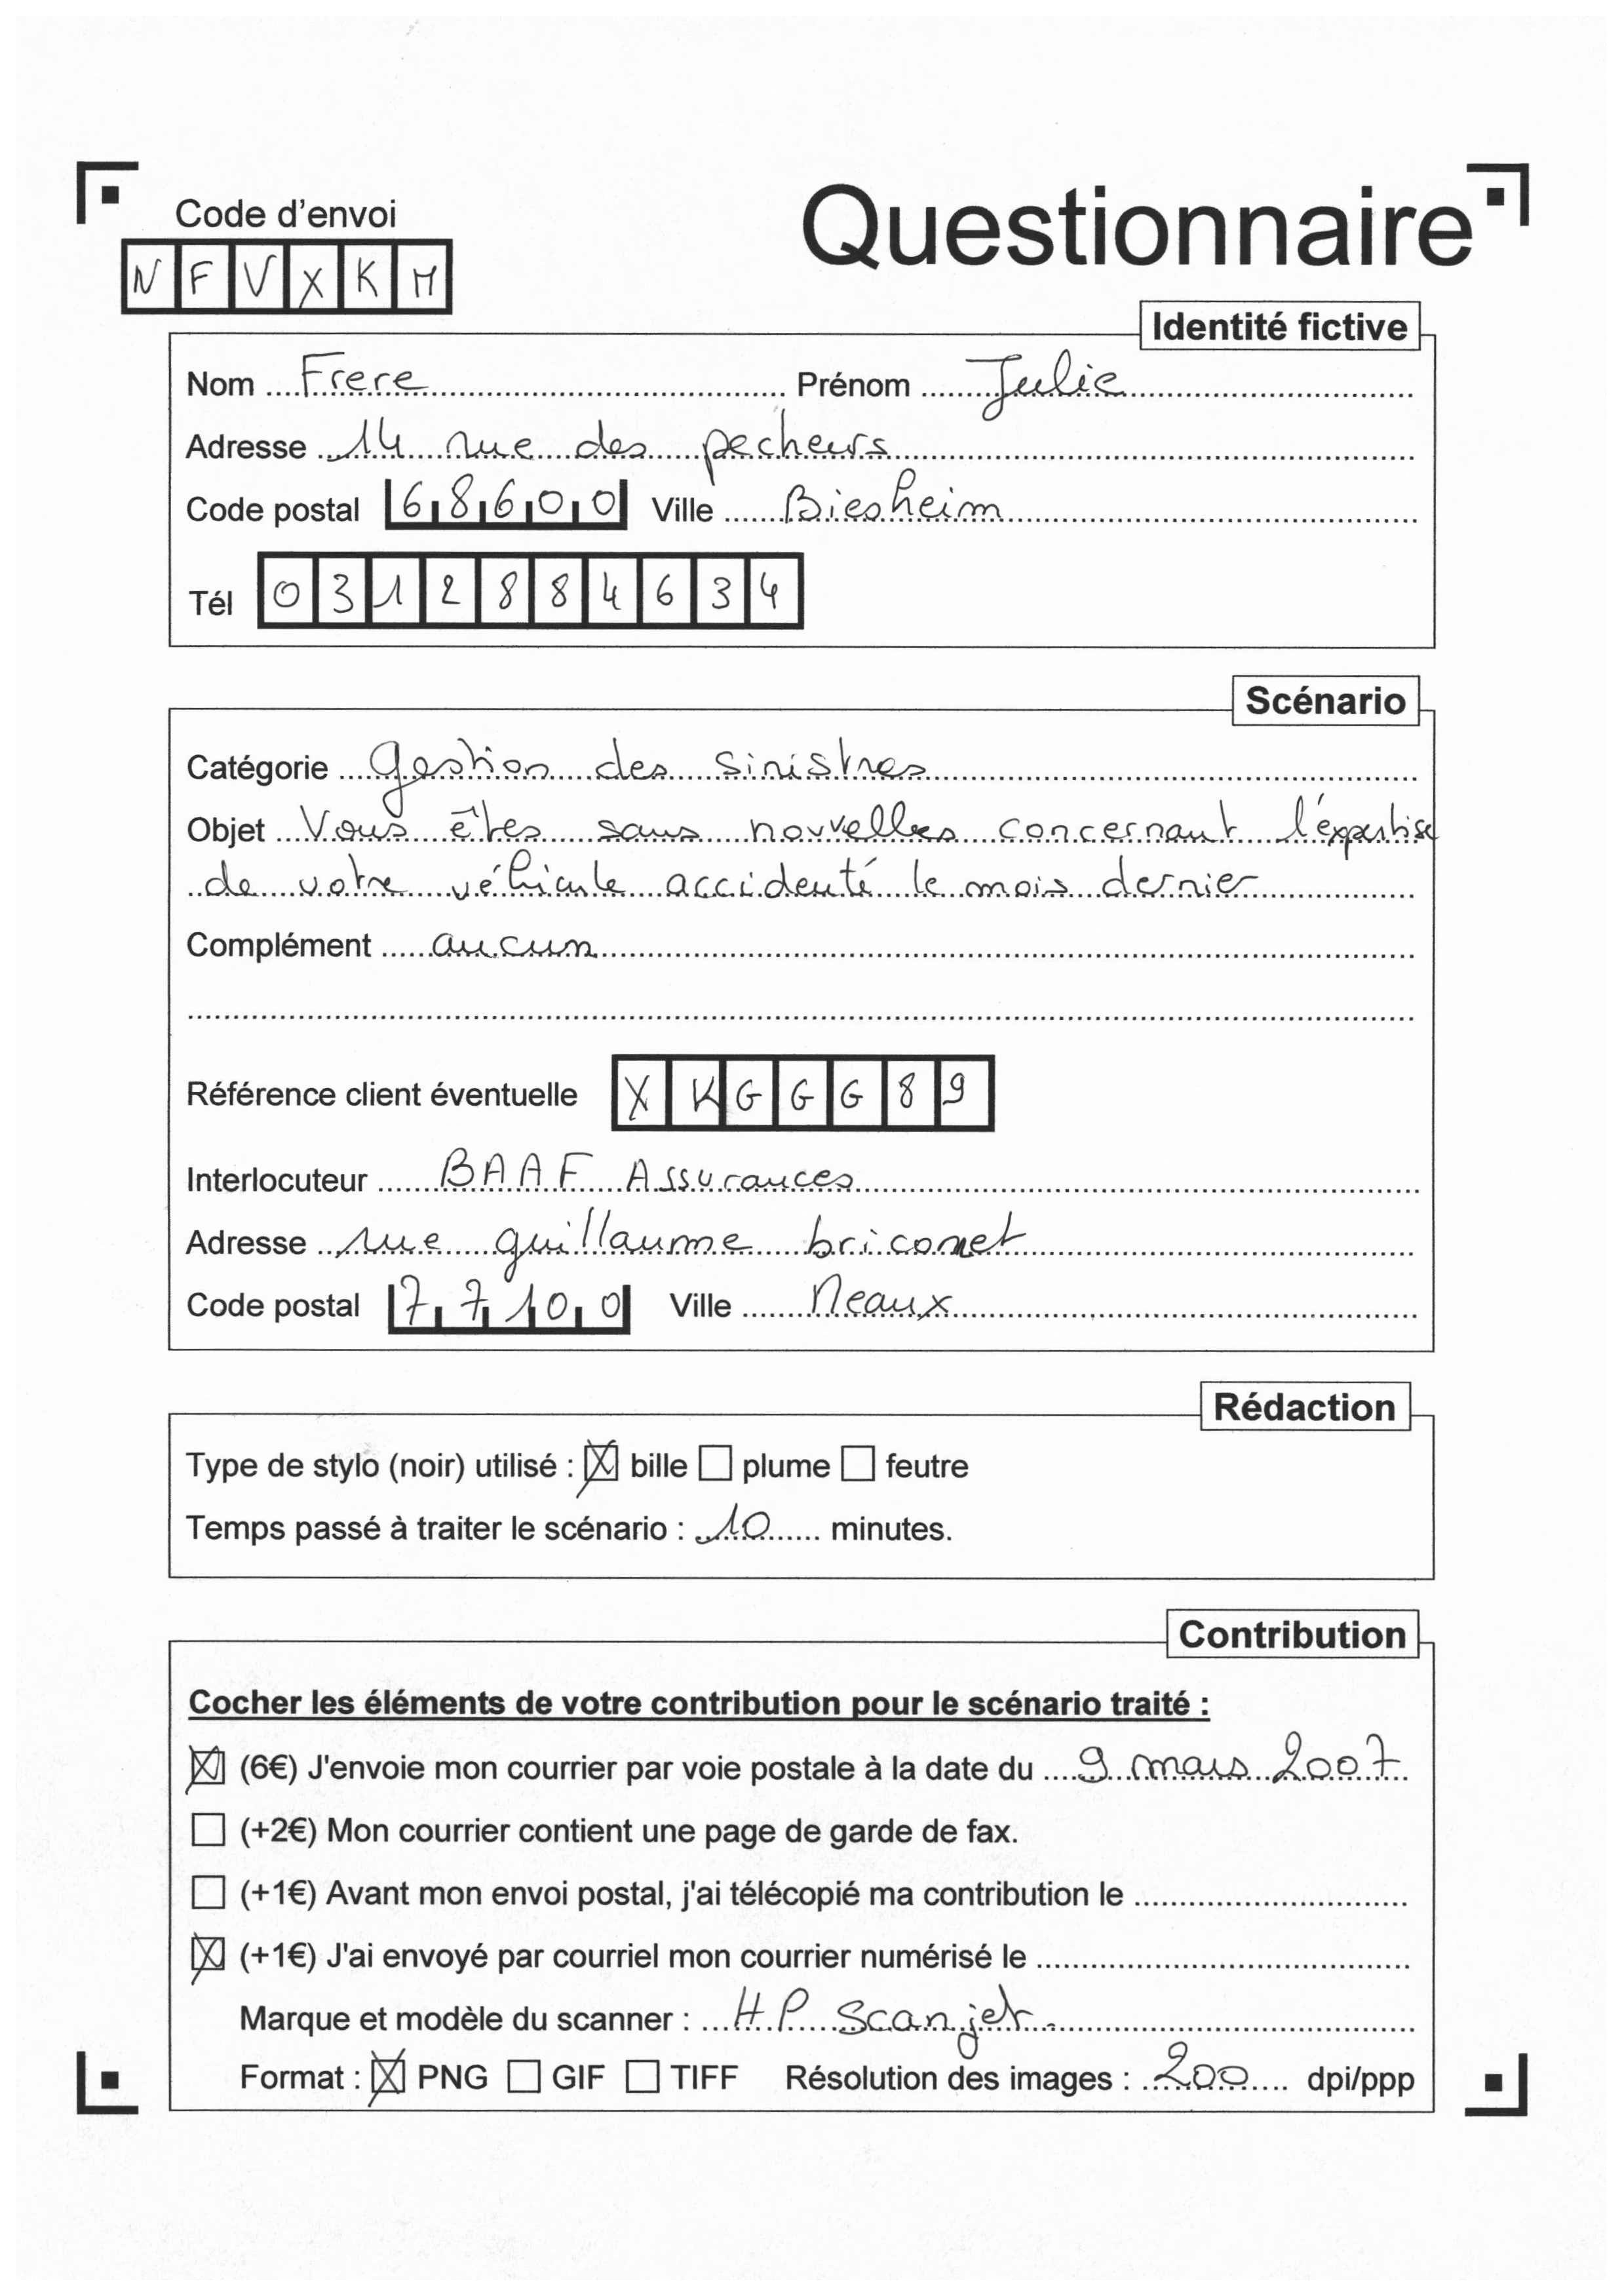 Code d'envoi
Questionnaire
N F V X K M
Identité fictive
Nom Frere Prénom Julie
Adresse 14 rue des pecheurs
Code postal 68600 Ville Biesheim
Tél 0312884634
Scénario
Catégorie gestion des sinistres
Objet Vous êtes sans nouvelles concernant l'expertise
de votre véhicule accidenté le mois dernier
Complément aucun
Référence client éventuelle X K G G G 8 9
Interlocuteur BAAF Assurances
Adresse rue guillaume briconet
Code postal 77100 Ville Meaux
Rédaction
Type de stylo (noir) utilisé : ☒ bille ☐ plume ☐ feutre
Temps passé à traiter le scénario : 10 minutes.
Contribution
Cocher les éléments de votre contribution pour le scénario traité :
☒ (6€) J'envoie mon courrier par voie postale à la date du 9 mars 2007
☐ (+2€) Mon courrier contient une page de garde de fax.
☐ (+1€) Avant mon envoi postal, j'ai télécopié ma contribution le
☒ (+1€) J'ai envoyé par courriel mon courrier numérisé le
Marque et modèle du scanner : HP Scanjet.
Format : ☒ PNG ☐ GIF ☐ TIFF Résolution des images : 200 dpi/ppp